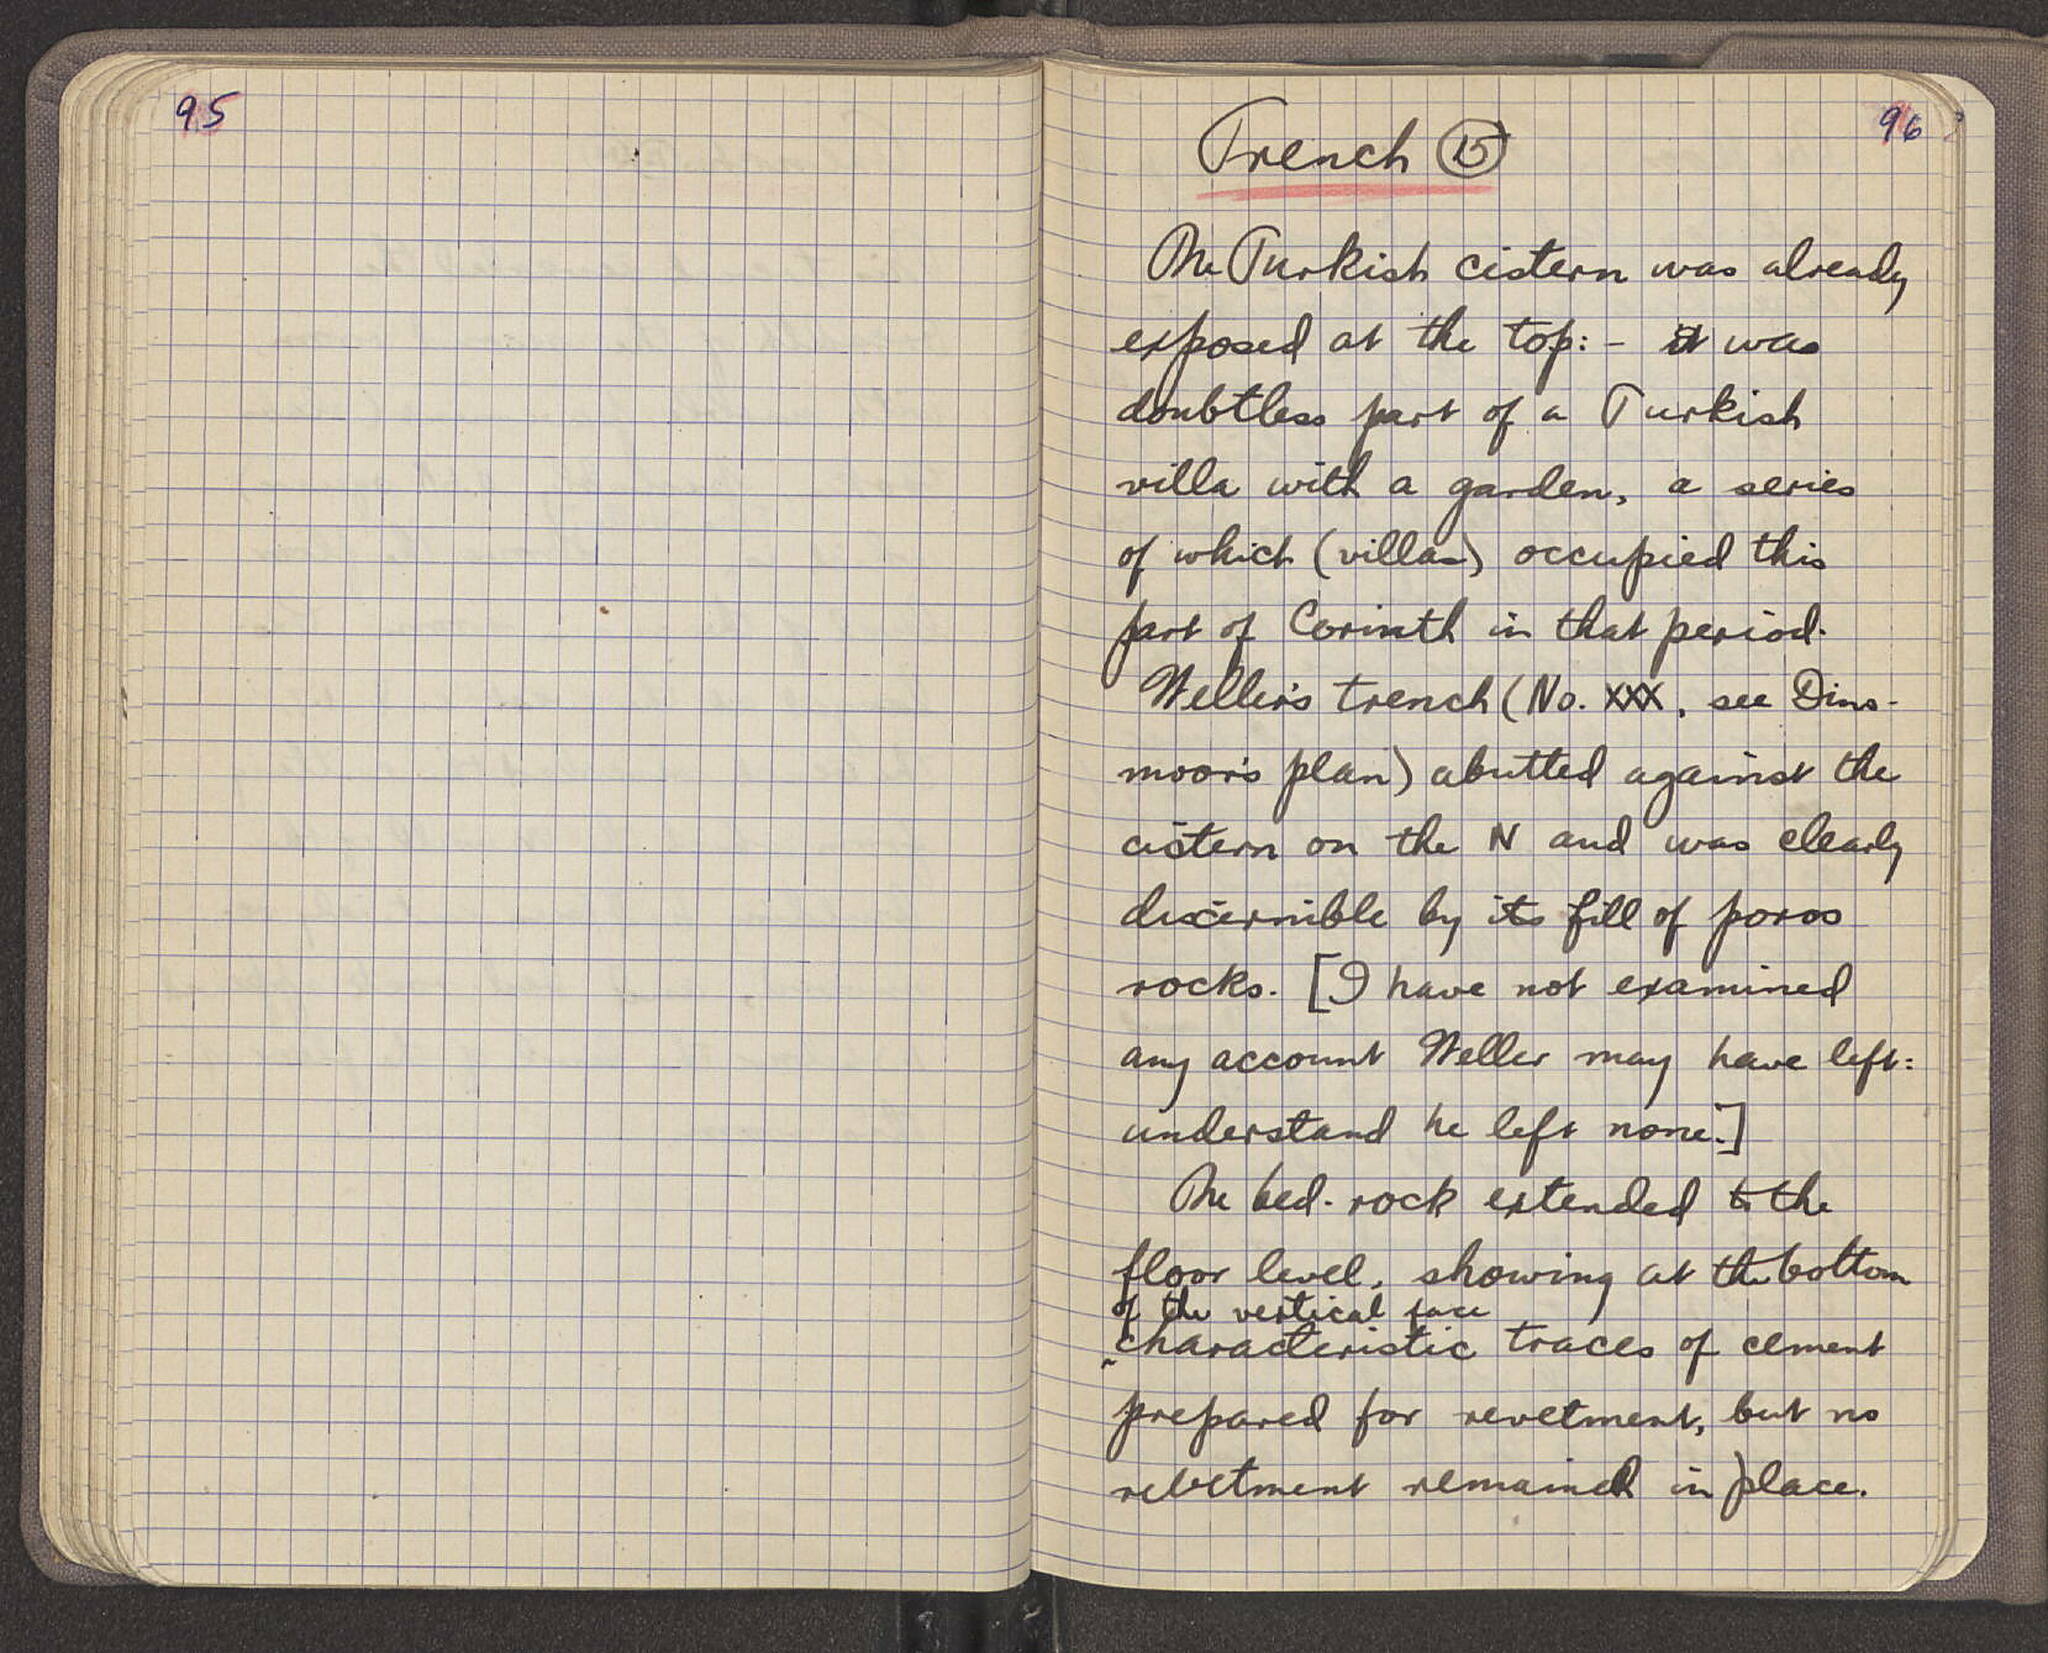 95
96
Trench 15
The Turkish cistern was already
exposed at the top: - it was
doubtless part of a Turkish
villa with a garden, a series
of which (villas) occupied this
part of Corinth in that period.
Weller's trench (No. XXX, see Dins-
moor's plan) abutted against the
cistern on the N and was clearly
discernible by its fill of poros
rocks. [I have not examined
any account Weller may have left:
understand he left none.]
The bed-rock extended to the
floor level, showing at the bottom
of the vertical face
characteristic traces of cement
prepared for revetment, but no
revetment remained in place.